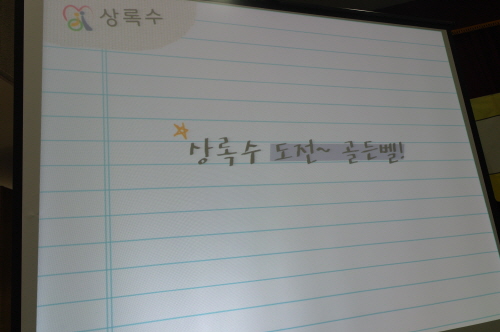 상록수
상록수 도전~ 골든벨!